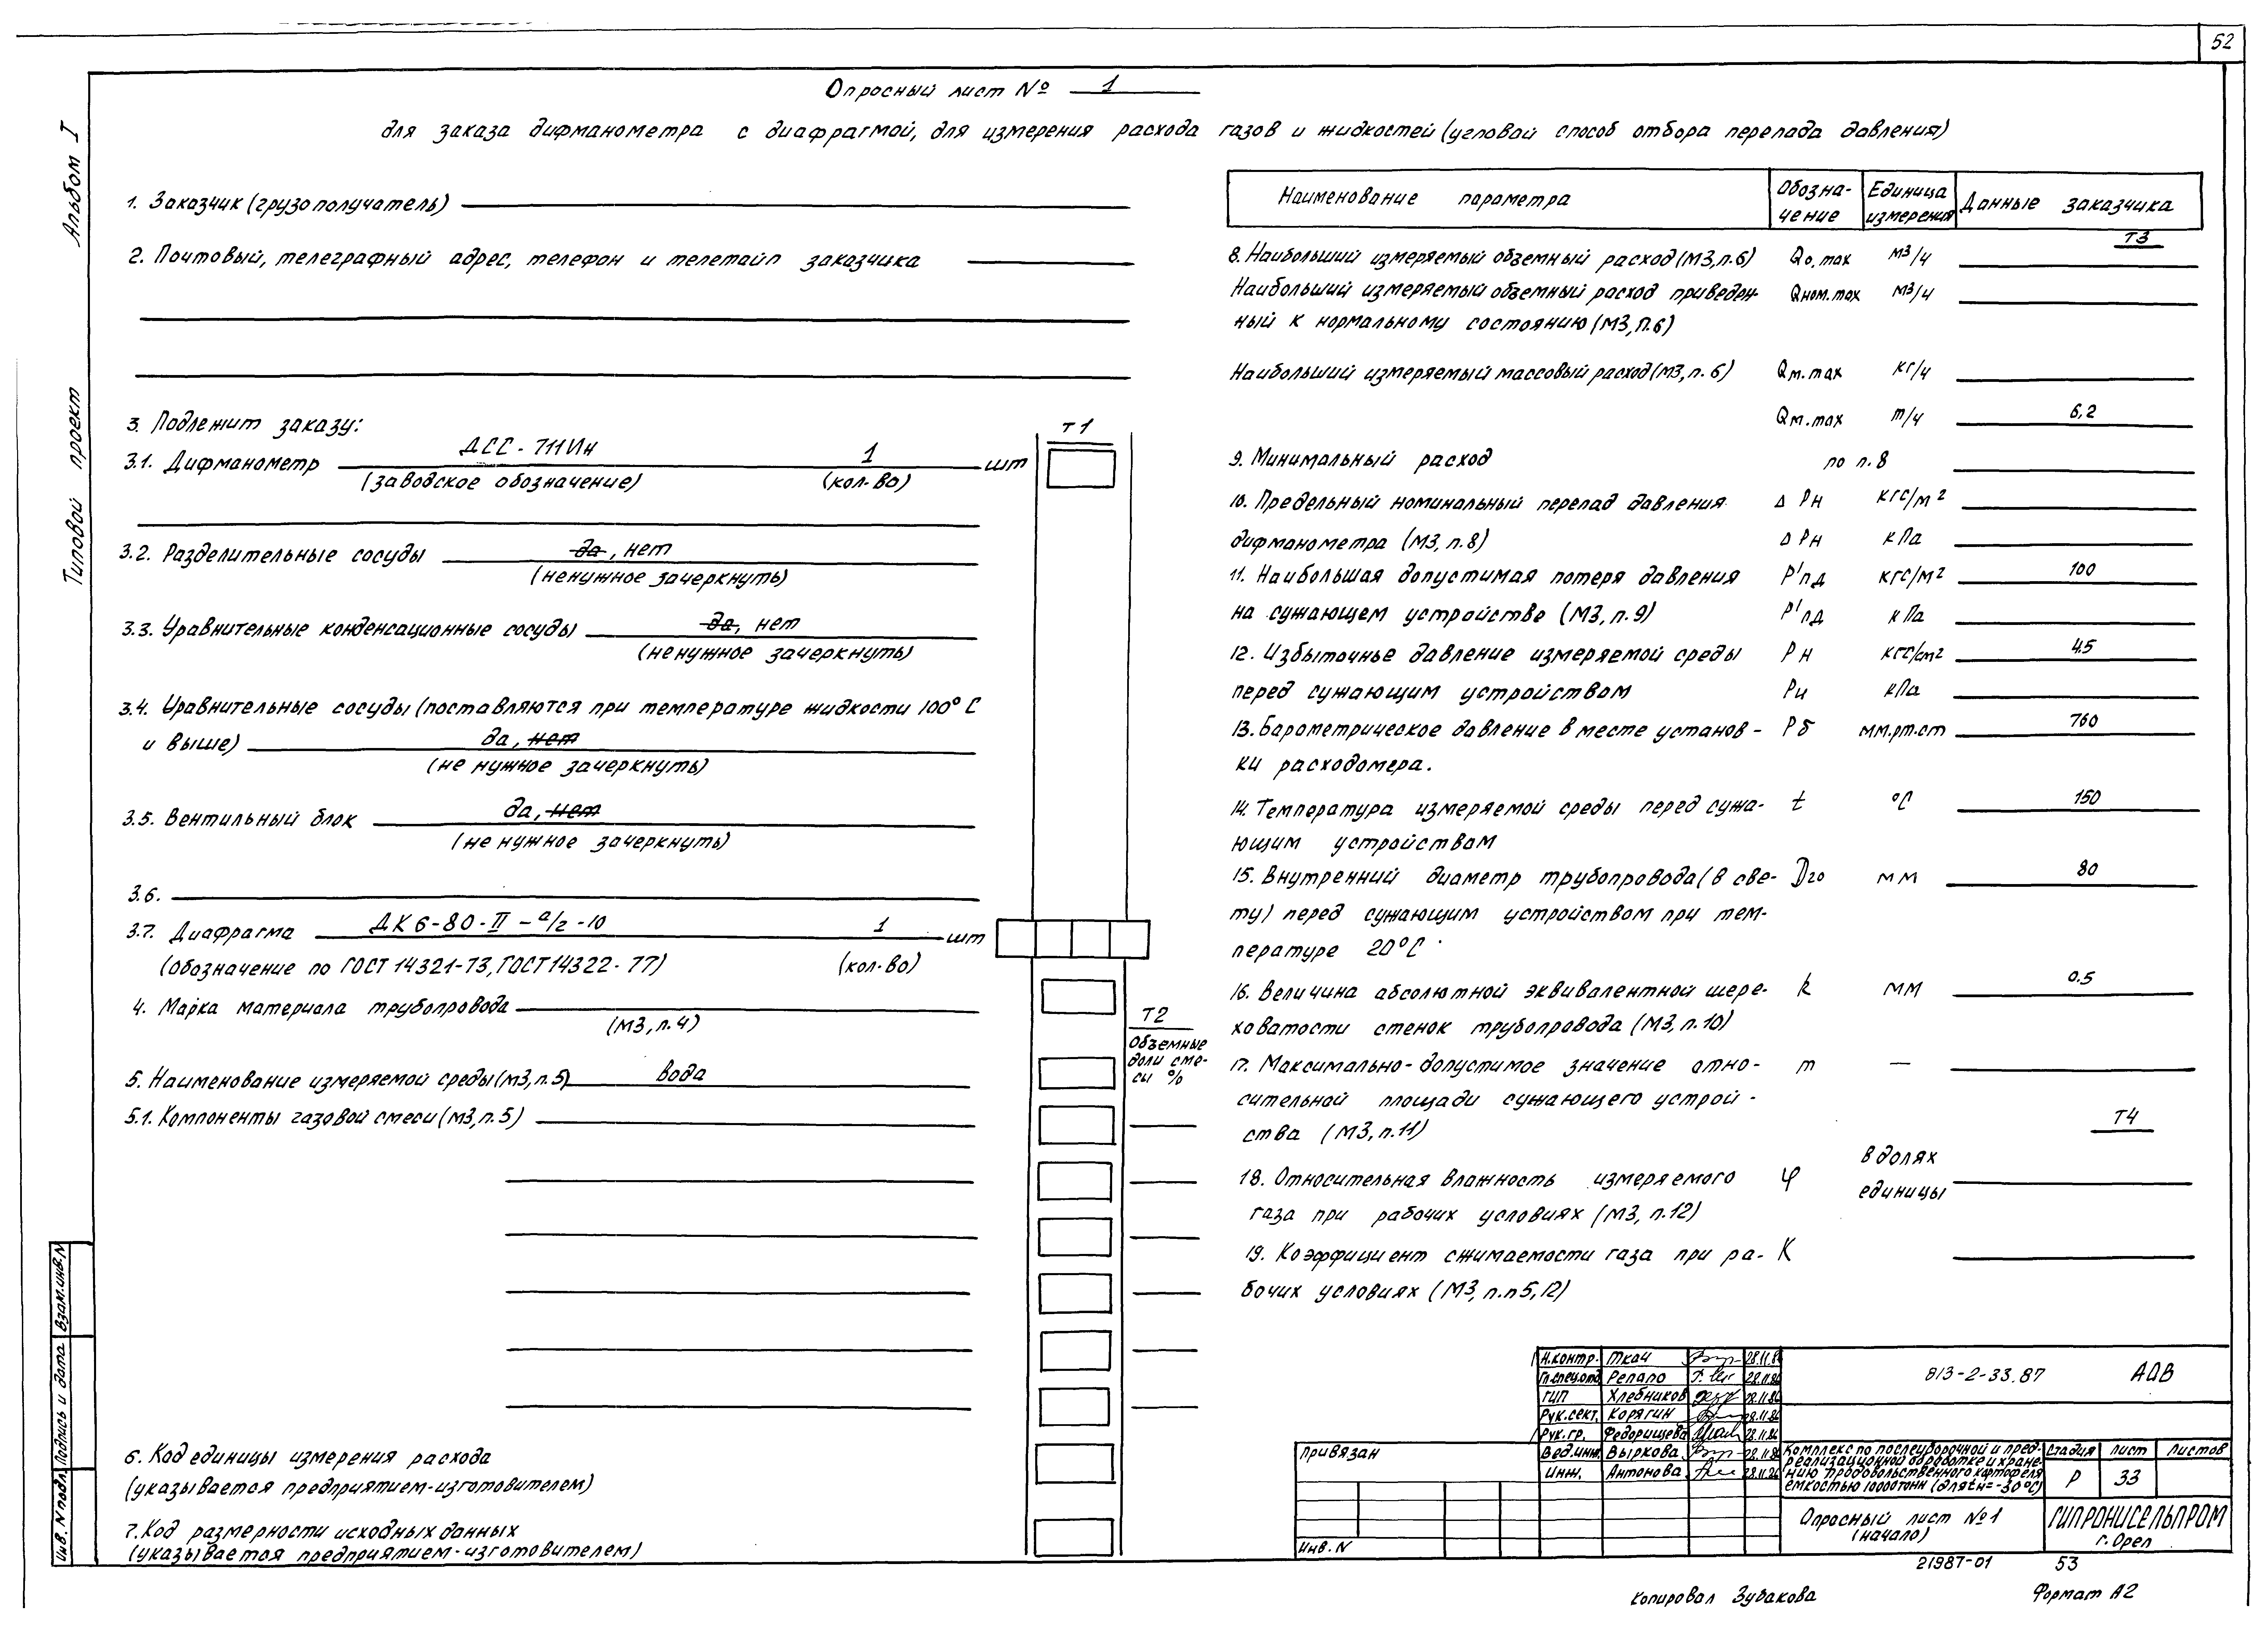 52
Опросный лист № 1
для заказа дифманометра с диафрагмой, для измерения расхода газов и жидкостей (угловой способ отбора перепада давления)
Альбом I
Типовой проект
1. Заказчик (грузополучатель)
2. Почтовый, телеграфный адрес, телефон и телетайп заказчика
3. Подлежит заказу:
Т1
3.1. Дифманометр ДСС-711Ин 1 шт
(заводское обозначение) (кол-во)
3.2. Разделительные сосуды да, нет
(ненужное зачеркнуть)
3.3. Уравнительные конденсационные сосуды да, нет
(ненужное зачеркнуть)
3.4. Уравнительные сосуды (поставляются при температуре жидкости 100°С
и выше) да, нет
(не нужное зачеркнуть)
3.5. Вентильный блок да, нет
(не нужное зачеркнуть)
3.6.
3.7. Диафрагма ДК 6-80-II-а/г-10 1 шт
(обозначение по ГОСТ 14321-73, ГОСТ 14322-77) (кол-во)
4. Марка материала трубопровода
(МЗ, п.4)
Т2
Объемные
доли сме-
си %
5. Наименование измеряемой среды (МЗ, п.5) вода
5.1. Компоненты газовой смеси (МЗ, п.5)
6. Код единицы измерения расхода
(указывается предприятием-изготовителем)
7. Код размерности исходных данных
(указывается предприятием-изготовителем)
Наименование параметра Обозна-чение Единица измерения Данные заказчика
Т3
8. Наибольший измеряемый обземный расход (МЗ, п.6) Qо.max м3/ч
Наибольший измеряемый обземный расход приведен- Qном.max м3/ч
ный к нормальному состоянию (МЗ, п.6)
Наибольший измеряемый массовый расход (МЗ, п.6) Qм.max кг/ч
Qм.max т/ч 6,2
9. Минимальный расход по п.8
10. Предельный номинальный перепад давления Δ Рн кгс/м2
дифманометра (МЗ, п.8) Δ Рн кПа
11. Наибольшая допустимая потеря давления Р'пд кгс/м2 100
на сужающем устройстве (МЗ, п.9) Р'пд кПа
12. Избыточнье давление измеряемой среды Рн кгс/см2 4.5
перед сужающим устройством Ри кПа
13. Барометрическое давление в месте установ- Рб мм.рт.ст 760
ки расходомера.
14. Температура измеряемой среды перед сужа- t °С 150
ющим устройством
15. Внутренний диаметр трубопровода (в све- D20 мм 80
ту) перед сужающим устройством при тем-
пературе 20°С
16. Величина абсолютной эквивалентной шере- k мм 0.5
ховатости стенок трубопровода (МЗ, п.10)
17. Максимально-допустимое значение отно- m —
сительной площади сужающего устрой-
ства (МЗ, п.11)
Т4
18. Относительная влажность измеряемого φ в долях единицы
газа при рабочих условиях (МЗ, п.12)
19. Коэффициент сжимаемости газа при ра- К
бочих условиях (МЗ, п.п 5, 12)
Н.контр. Ткач 28.11.86
Гл.спец.отд Репало 28.11.86
ГИП Хлебников 28.11.86
Рук.сект. Корягин 28.11.86
Рук.гр. Федорищева 28.11.86
Вед.инж. Выркова 28.11.86
Инж. Антонова 28.11.86
813-2-33.87 АОВ
Комплекс по послеуборочной и пред-
реализационной обработке и хране-
нию продовольственного картофеля
емкостью 10000 тонн (для tн=-30°С)
Стадия лист листов
Р 33
Опросный лист №1
(начало)
ГИПРОНИСЕЛЬПРОМ
г. Орел
Привязан
Инв. N
Взам.инв.N
Подпись и дата
Инв. N подл.
21987-01 53
Копировал Зубакова
Формат А2